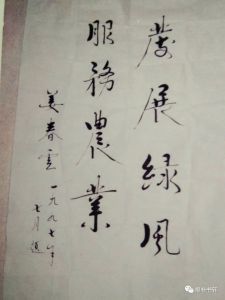 發展綠風
服務農業
姜春雲 一九九七年
七月